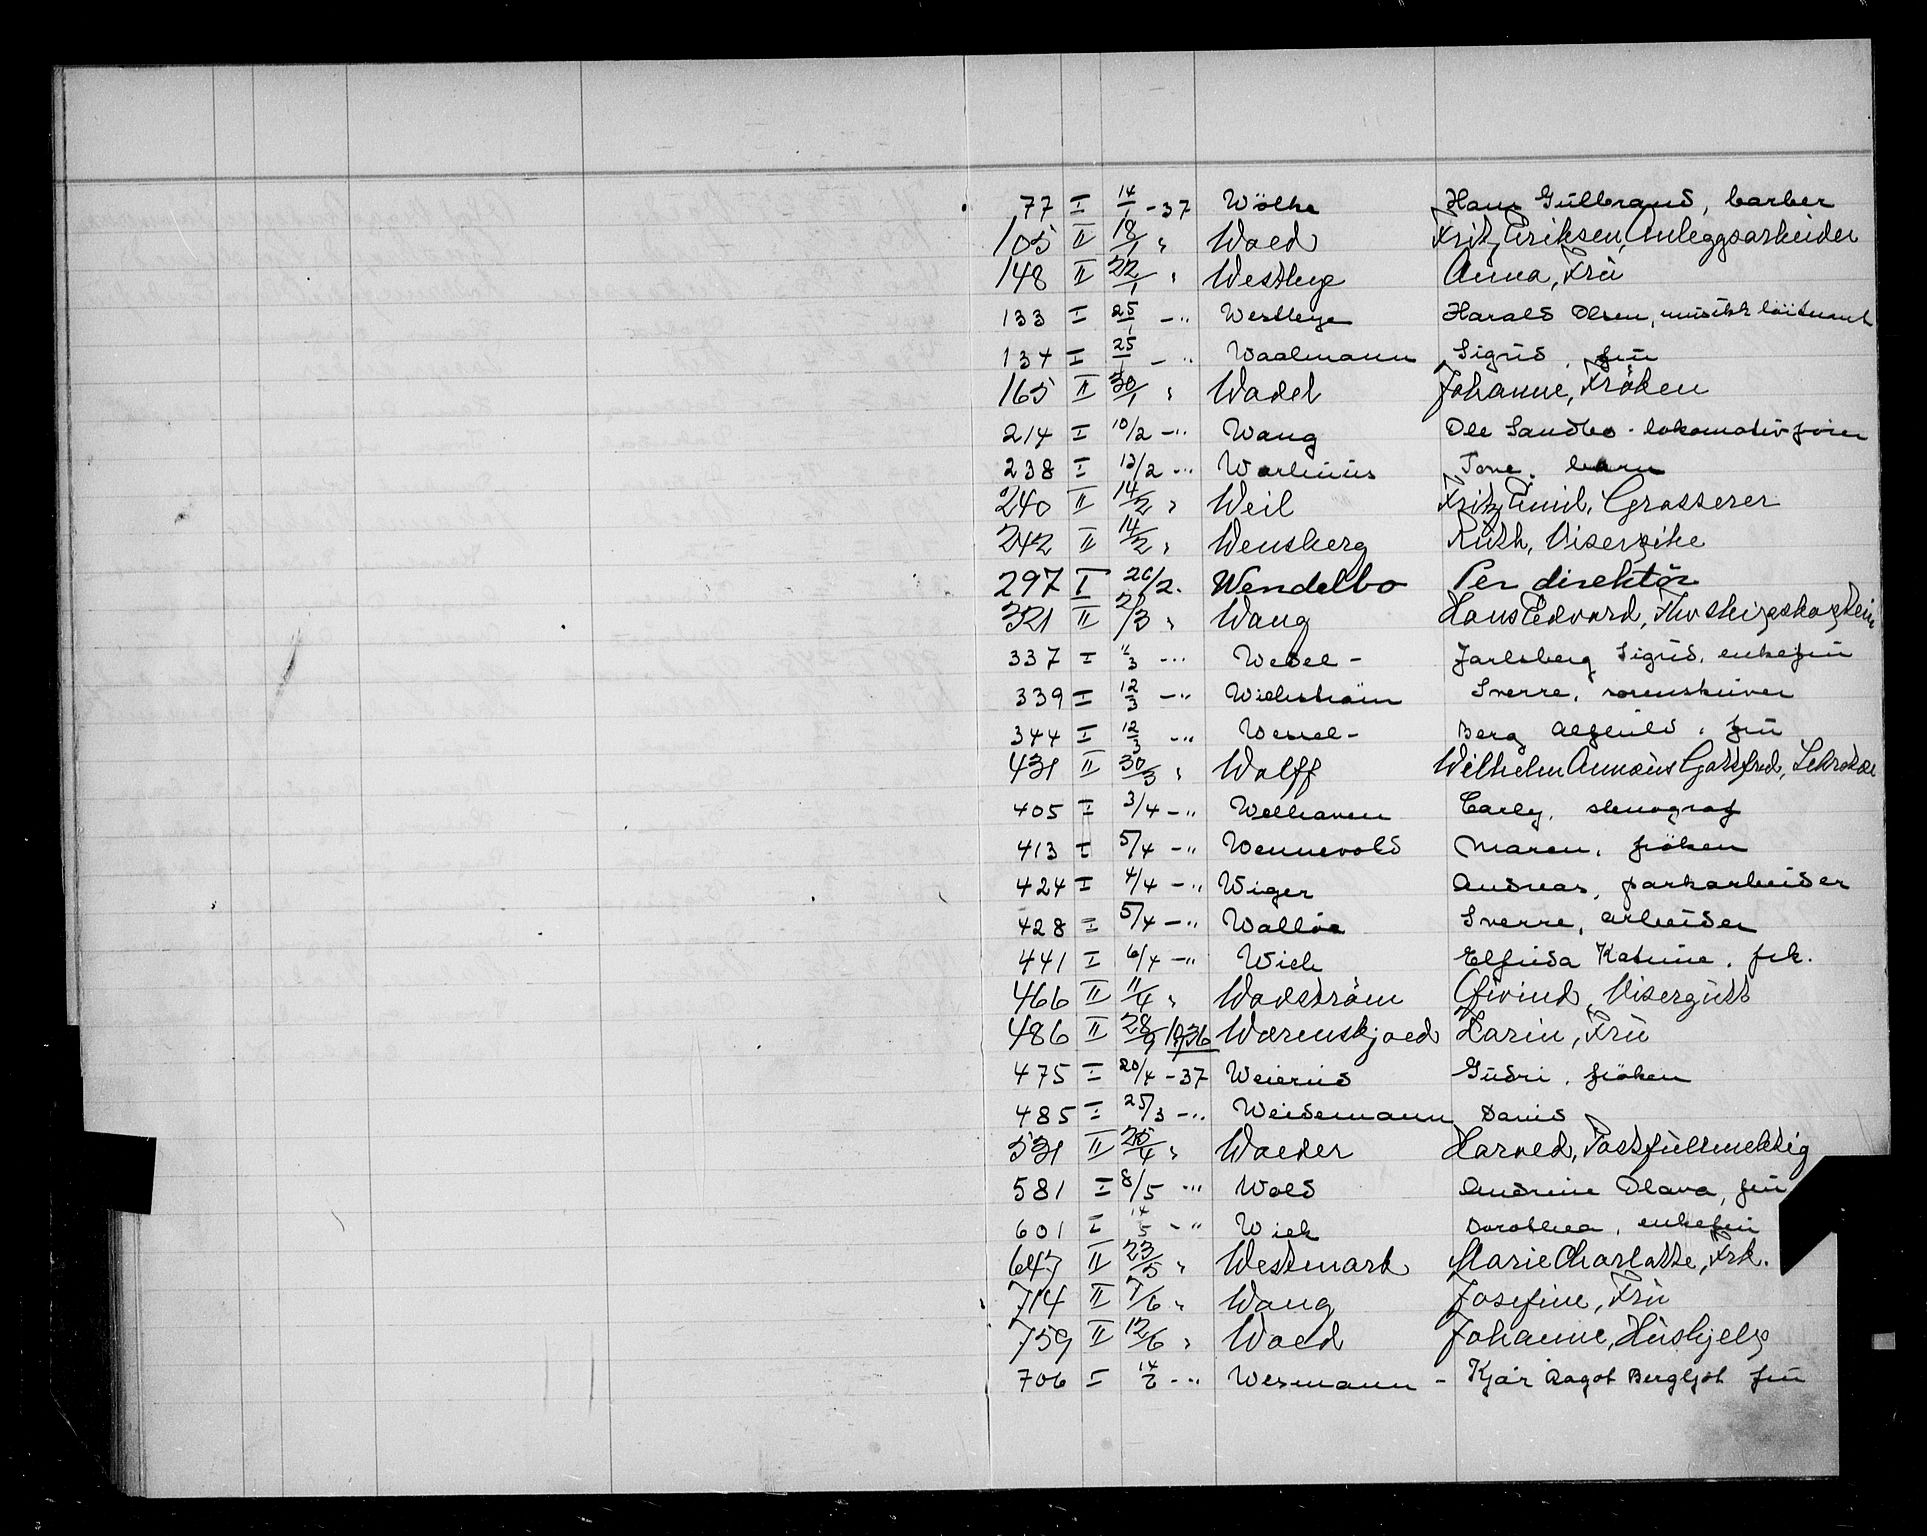 77 I 14/1 -37 Wölke Hans Gulbrand, barber
105 II 18/1 " Wold Fritz Eriksen, Anleggsarbeider
148 II 22/1 " Westbye Anna, Frü
133 I 25/1 -" Westbye Harald Olsen, musikk löitnant
134 I 25/1 -" Waalmann Sigrid, frü
165 II 30/1 " Wadel Johanne, Fröken
214 I 10/2 -" Wang Ole Sandbo - lokomotivförer
238 I 12/2 -" Warhuus Tove, barn
240 II 14/2 " Weil Fritz Emil, Grosserer
242 II 14/2 " Wensberg Ruth, Viserpike
297 I 26/2. Wendelbo Per direktör
321 II 2/3 " Wang Hans Edvard, Fhv skipskaptein
337 I 11/3 -" Wedel - Jarlsberg Sigrid, enkefrü
339 I 12/3 -" Wiekström Sverre, sorenskriver
344 I 12/3 -" Wessel - Berg Alfhild, frü
431 II 30/3 " Wolff Wilhelm Annæus Gottfred,
405 I 3/4 -" Welhaven Carly, stenograf
413 I 5/4 -" Wennevold Maren, fröken
424 I 4/4 -" Wiger Andreas, parkarbeider
428 I 5/4 -" Wallöe Sverre, arbeider
441 I 6/4 -" Wiek Elfrida Katrine, frk.
466 II 11/4 " Wadström Öivind, Visergutt
486 II 28/9 1936 Wærenskjold Karin, Frü
475 I 20/4 -37 Weierud Gudri, fröken
485 I 25/3 -" Weidemann David
531 II 25/4 " Wolder Harald, Postfullmektig
581 I 8/5 -" Wold Andrine Olava, frü
601 I 14/5 -" Wiek Dorothea, enkefrü
647 II 23/5 " Westmark Marie Charlotte, Frk.
714 II 7/6 " Wang Josefine, Frü
759 II 12/6 " Wold Johanne, Hushjelp
706 I 14/6 -" Wesmann - Kjær Aagot Bergljot frü